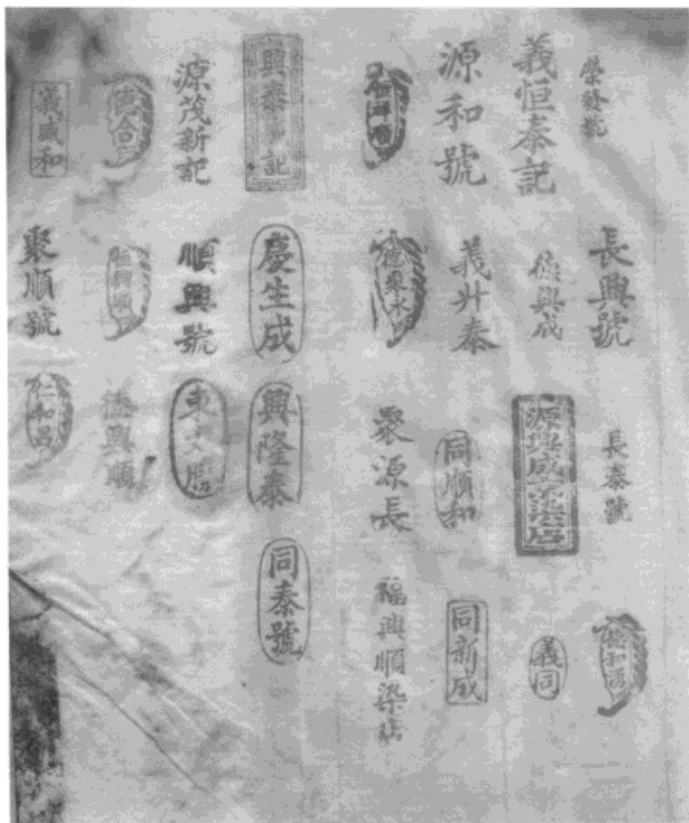 榮發號
長興號
長泰號
德和湧
義恒泰記
德興成
源興盛染店
義同
源和號
義升泰
同順和
同新成
德聚永
聚源長
福興順染店
興泰記
慶生成
興隆泰
同泰號
源茂新記
順興號
東大勝
德合
恒興順
德興順
義盛和
聚順號
仁和昌